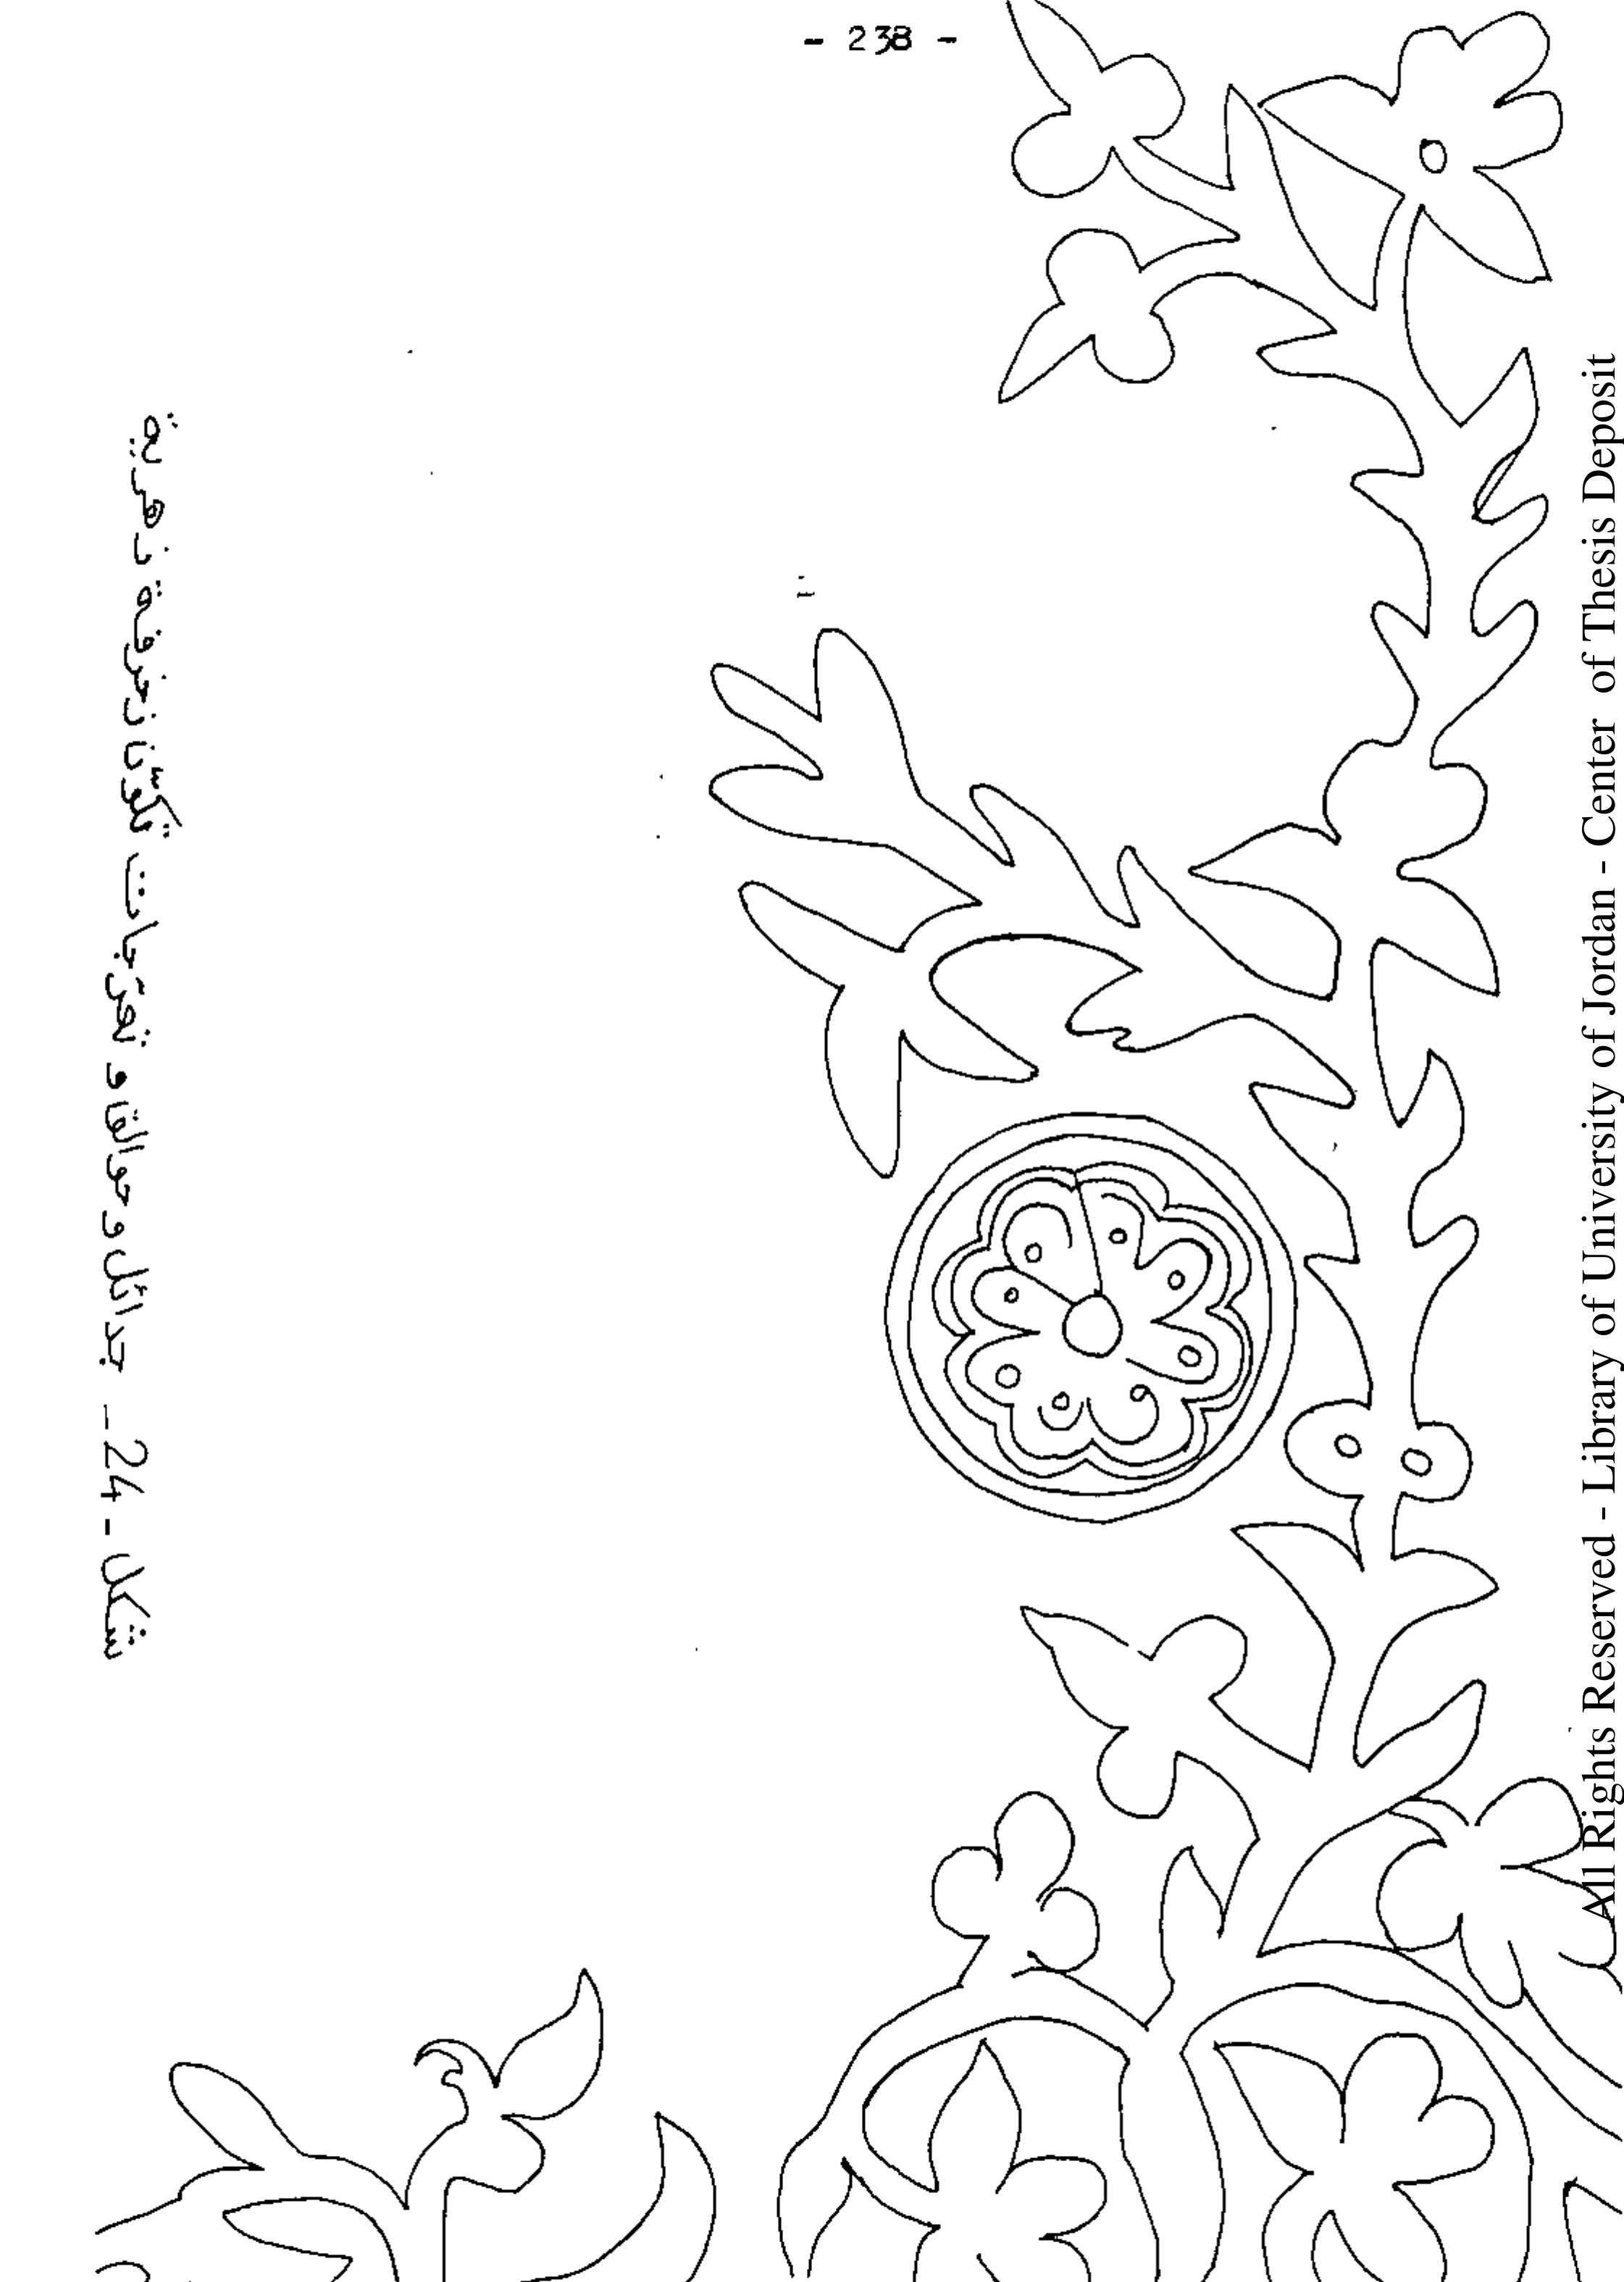 - 238 -
شكل - 24 - جدائل و حوالق و تعرّجات تكوّن زخرفة زهرية
All Rights Reserved - Library of University of Jordan - Center of Thesis Deposit